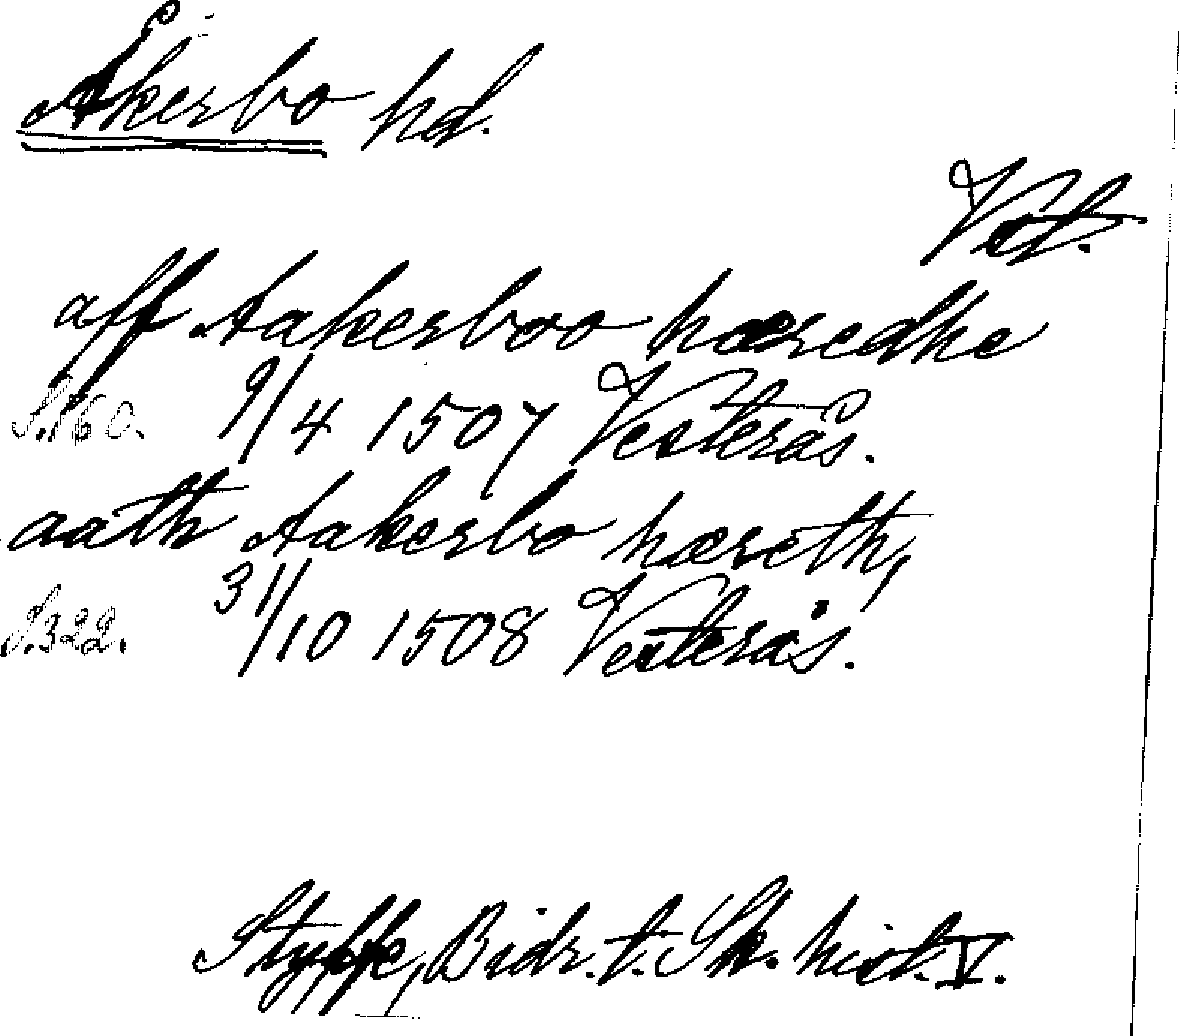 Åkerbo hd.
Vstl.
aff Aakerboo hæredhe
S. 160. 9/4 1507 Vesterås.
aath Aakerbo hæreth,
S. 322. 31/10 1508 Vesterås.
Styffe, Bidr. t. Sk. hist. V.